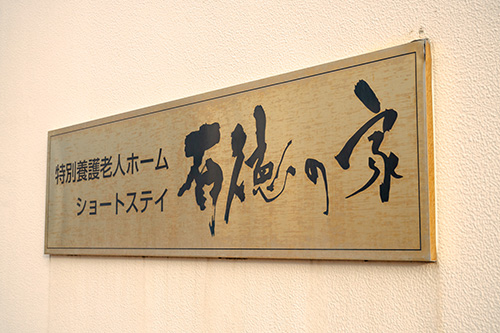 特別養護老人ホーム
ショートステイ
有徳の家